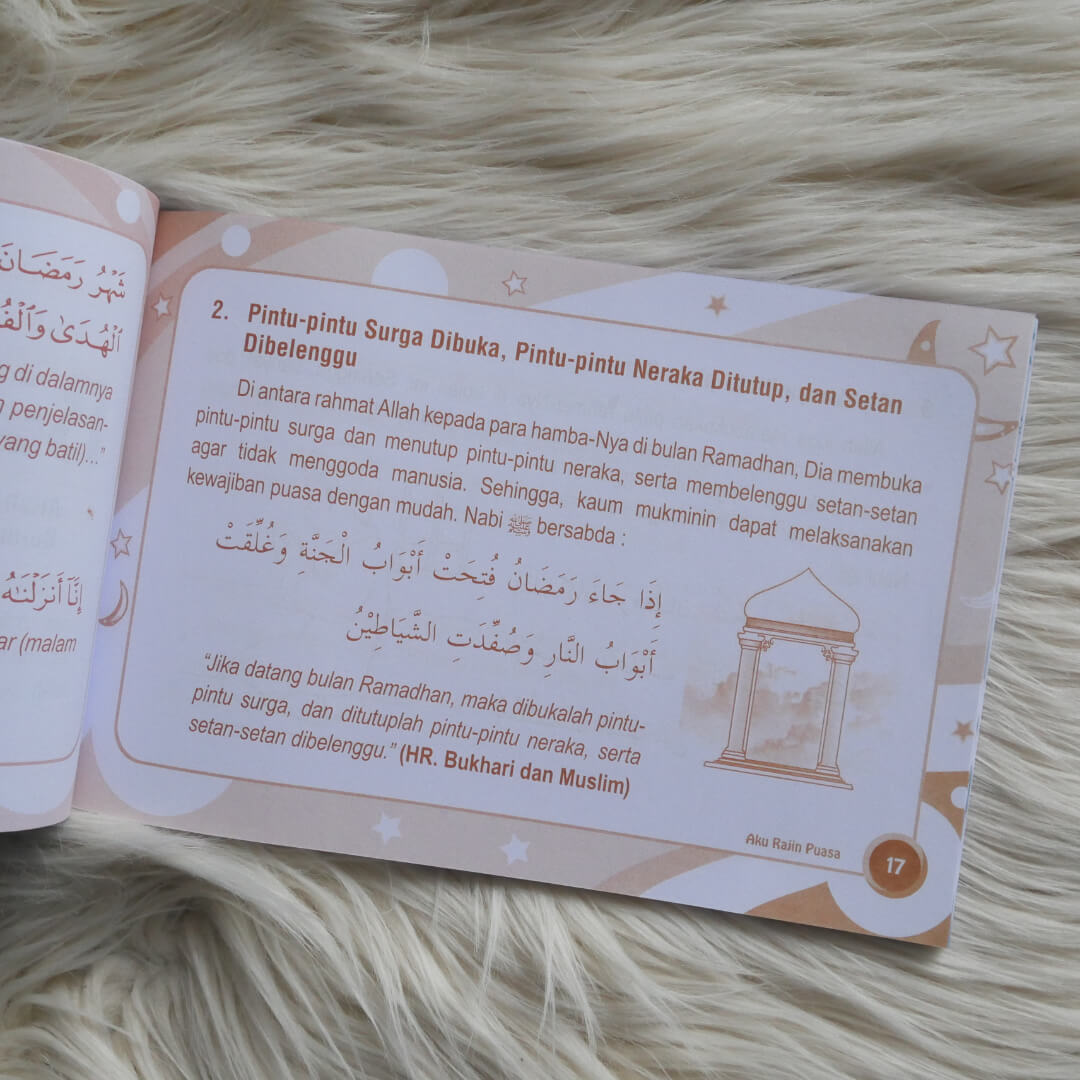 شَهْرُ رَمَضَانَ
ٱلْهُدَىٰ وَٱلْفُ
g di dalamnya
penjelasan-
yang batil)..."
إِنَّآ أَنزَلْنَـٰهُ
ar (malam
2. Pintu-pintu Surga Dibuka, Pintu-pintu Neraka Ditutup, dan Setan
Dibelenggu
Di antara rahmat Allah kepada para hamba-Nya di bulan Ramadhan, Dia membuka
pintu-pintu surga dan menutup pintu-pintu neraka, serta membelenggu setan-setan
agar tidak menggoda manusia. Sehingga, kaum mukminin dapat melaksanakan
kewajiban puasa dengan mudah. Nabi ﷺ bersabda :
إِذَا جَاءَ رَمَضَانُ فُتِحَتْ أَبْوَابُ الْجَنَّةِ وَغُلِّقَتْ
أَبْوَابُ النَّارِ وَصُفِّدَتِ الشَّيَاطِيْنُ
"Jika datang bulan Ramadhan, maka dibukalah pintu-
pintu surga, dan ditutuplah pintu-pintu neraka, serta
setan-setan dibelenggu." (HR. Bukhari dan Muslim)
Aku Rajin Puasa
17